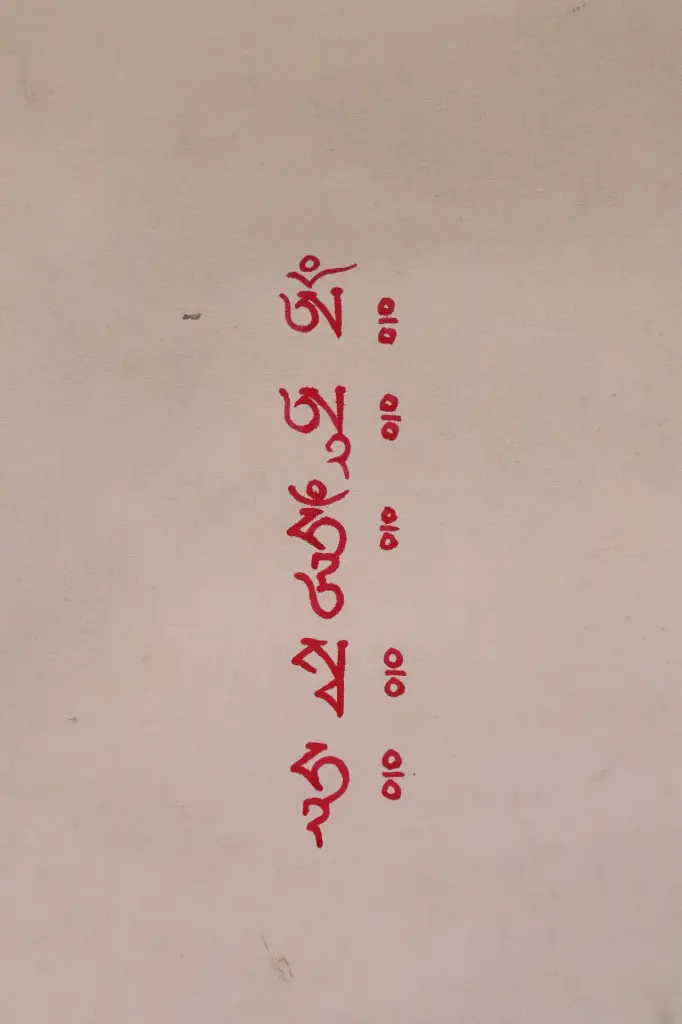 ཨོཾ༔
ཨཱ༔
ཧཱུྃ༔
སྭ༔
ཧཱ༔